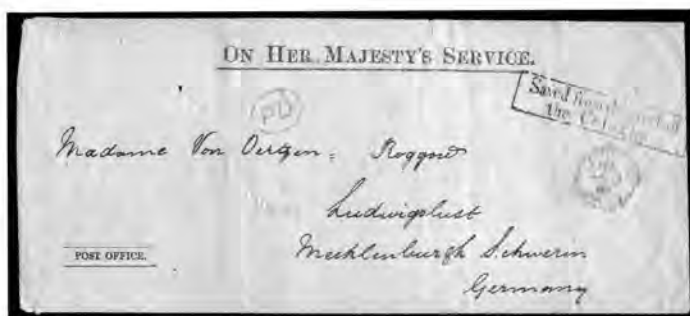 ON HER MAJESTY'S SERVICE.
Saved from the wreck of
the Colombo
PD
Madame Von Oertzen, Roggow
Ludwigslust
Mecklenburgh Schwerin
Germany
POST OFFICE.